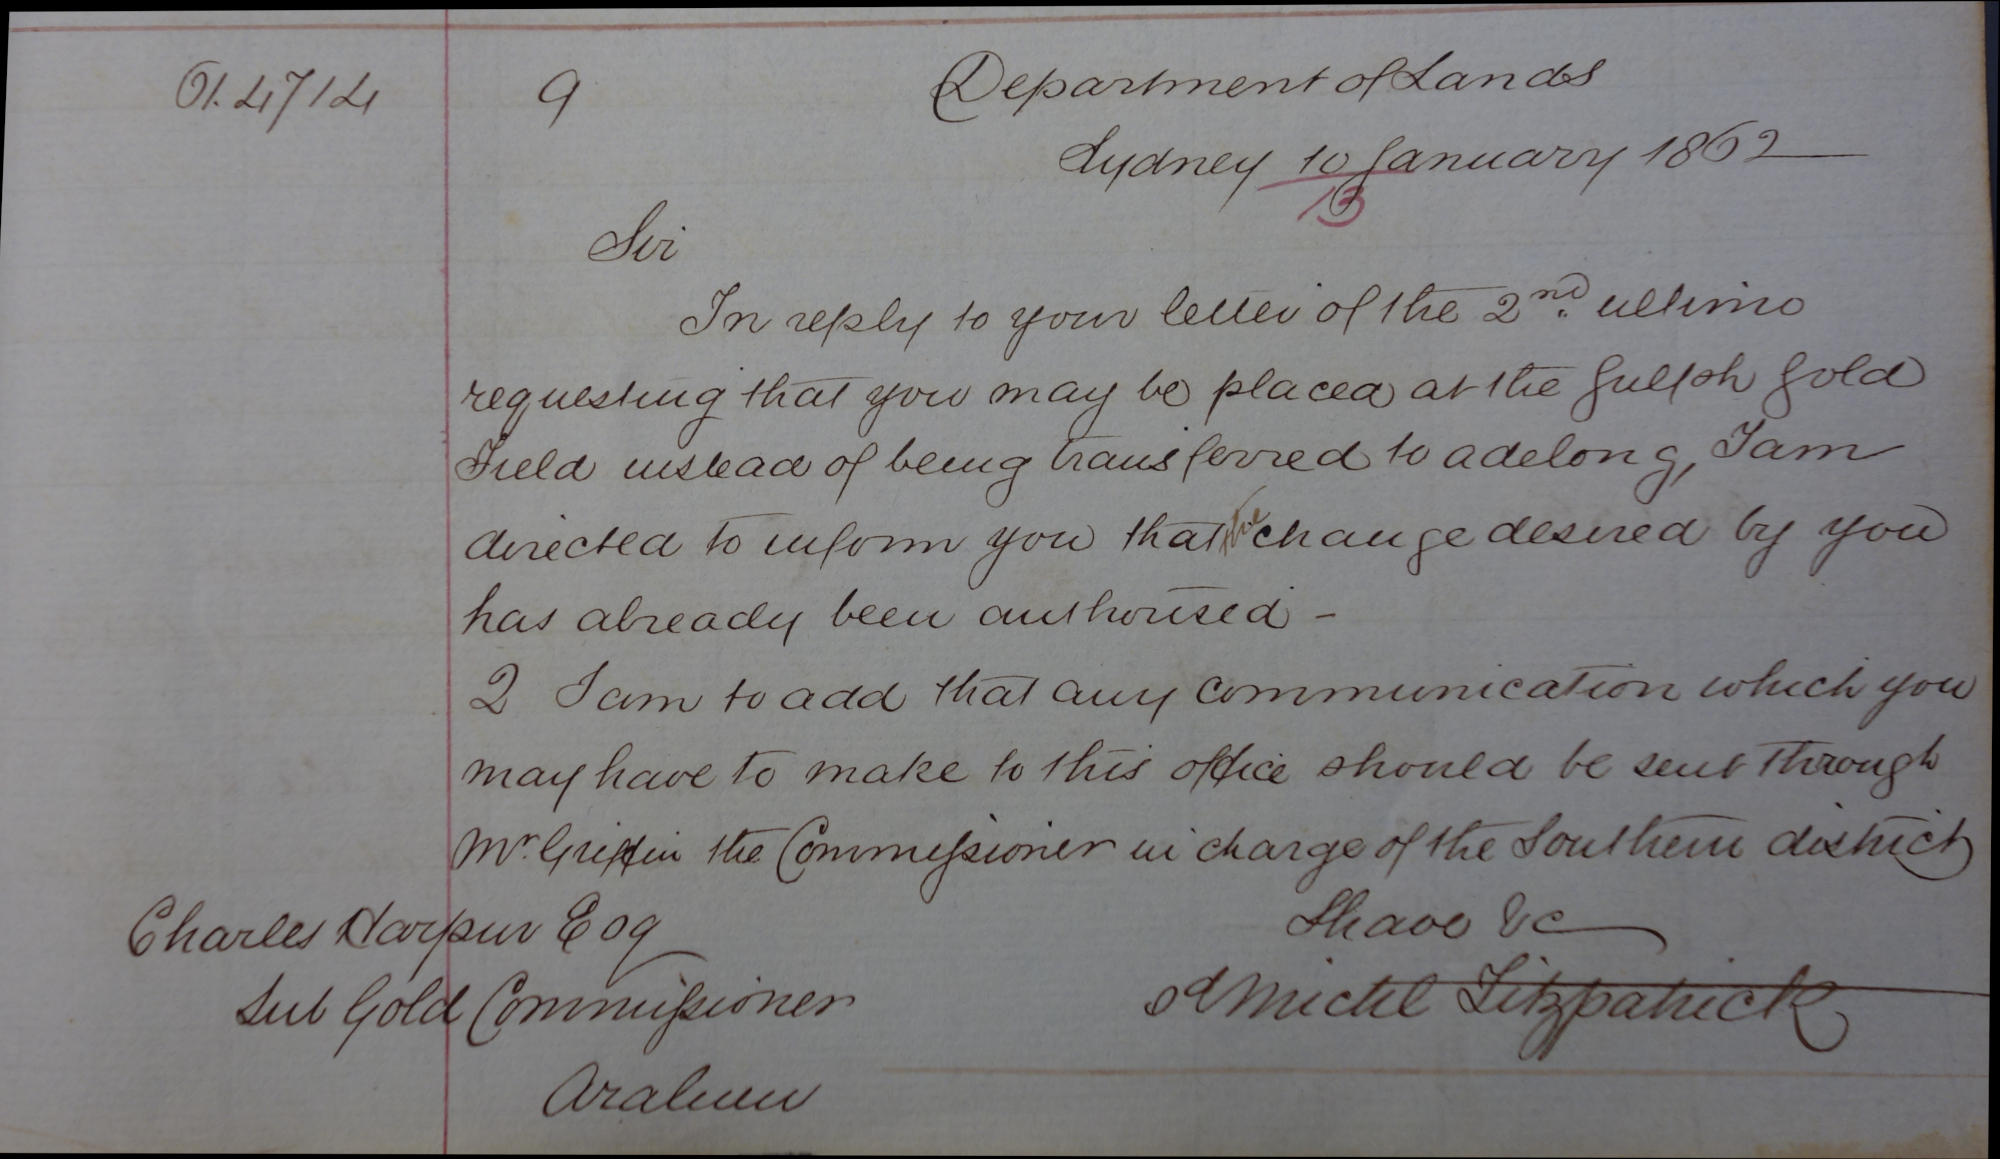 61.4714
9
Department of Lands
Sydney 10 January 1862
13
Sir
In reply to your letter of the 2nd. ultimo
requesting that you may be placed at the Gulph Gold
Field instead of being transferred to adelong, I am
directed to inform you that the change desired by you
has already been authorised -
2 I am to add that any communication which you
may have to make to this office should be sent through
Mr. Griffin the Commissioner in charge of the Southern district
I have &c
Sd Michl Fitzpatrick
Charles Harpur Esq
Sub Gold Commissioner
Araluen